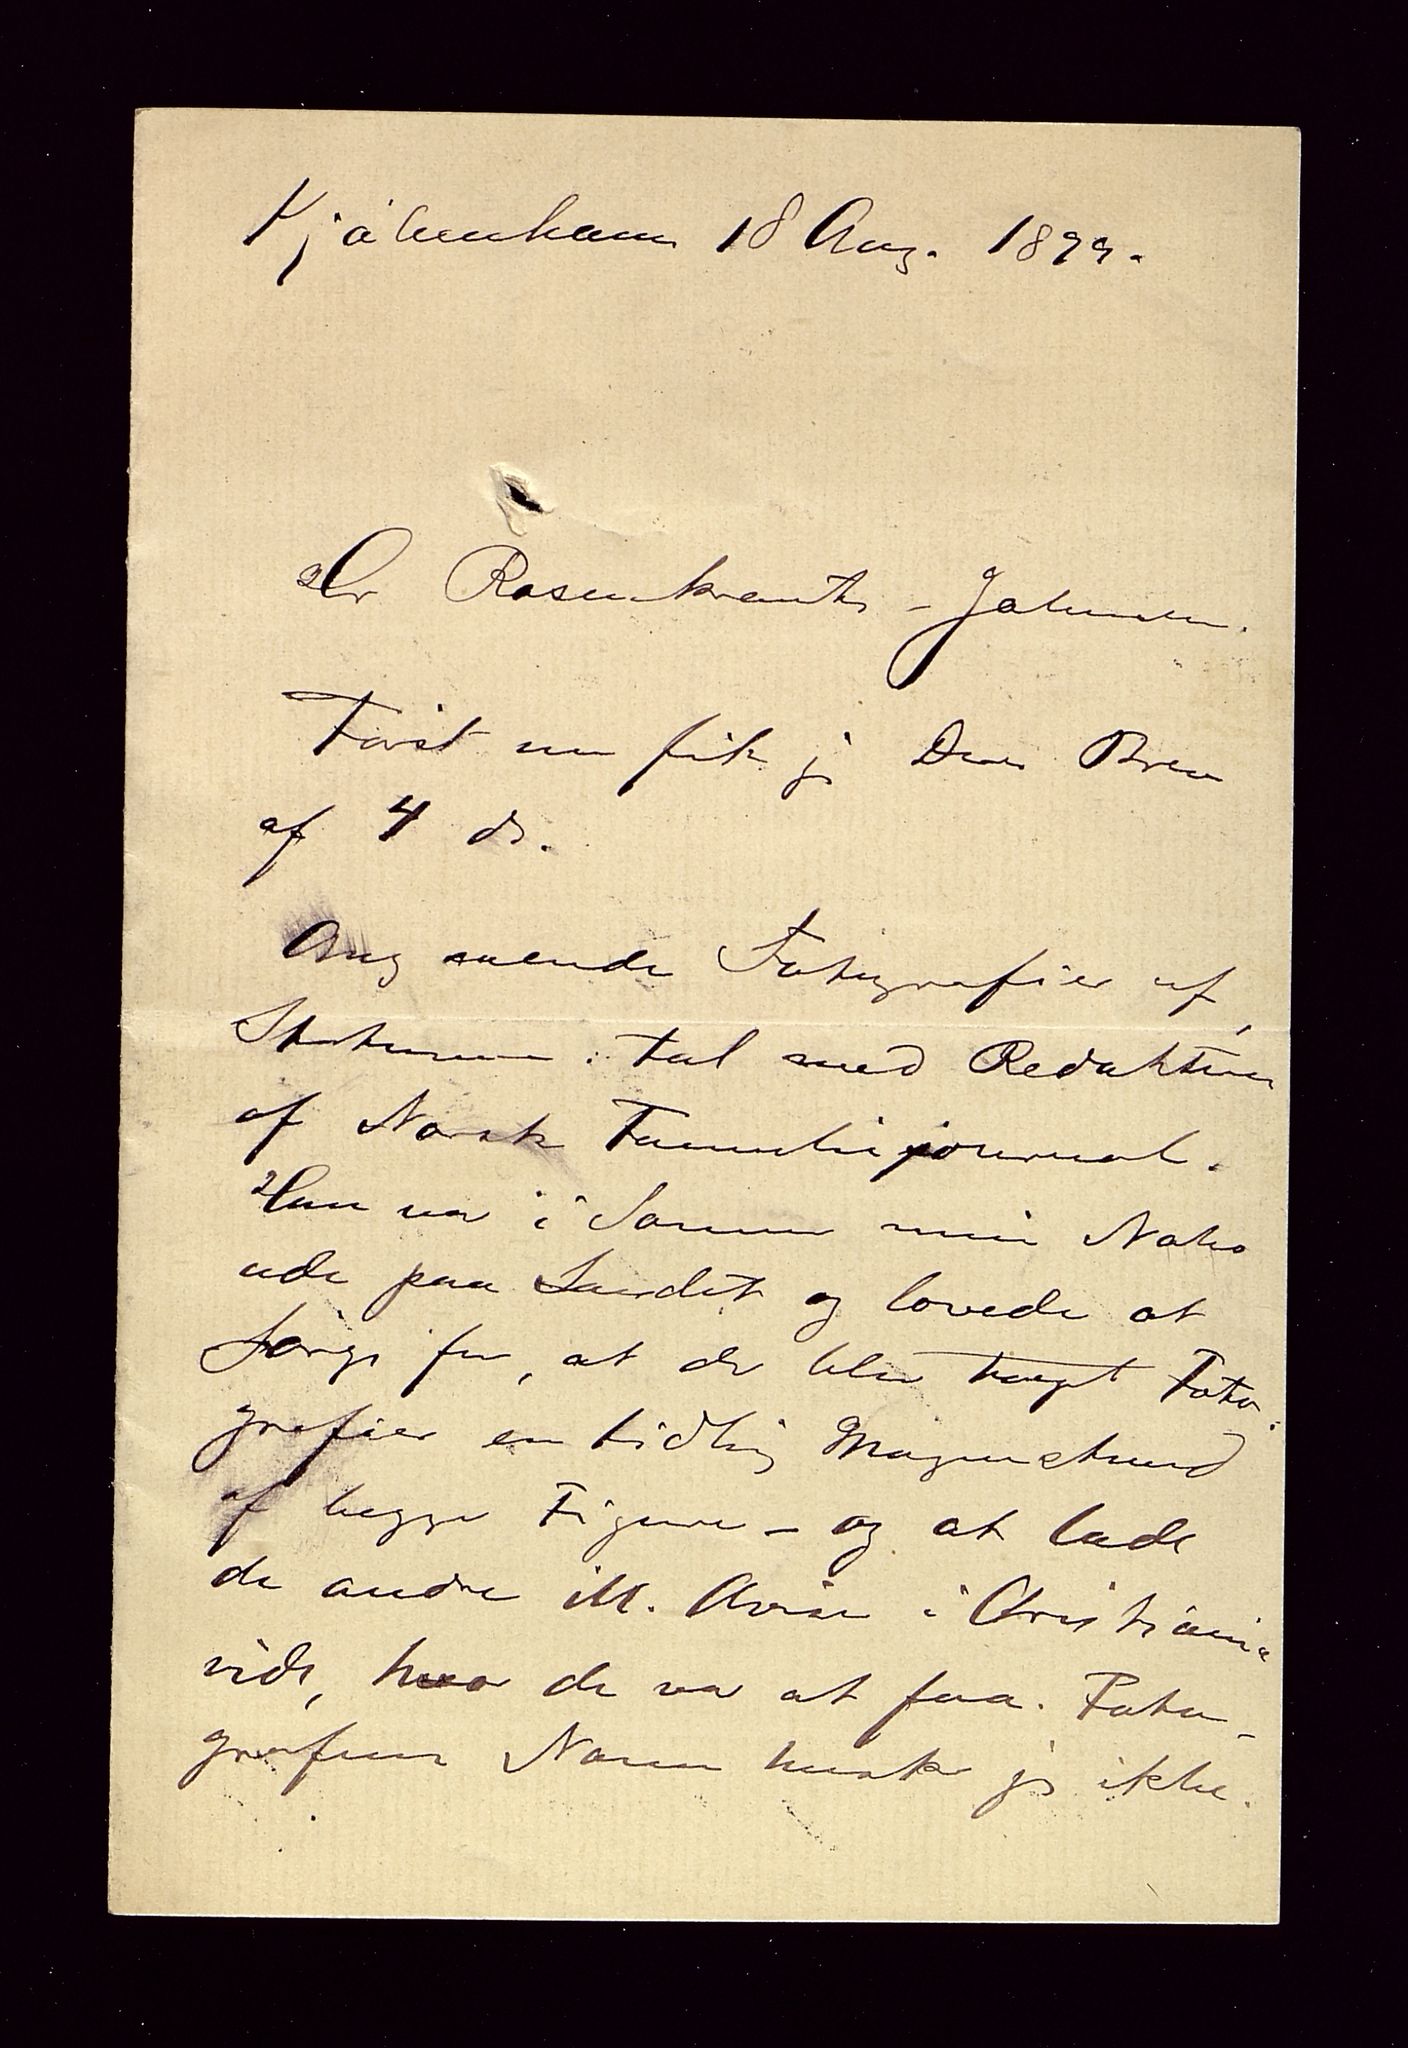 Kjøbenhavn 18 Aug. 1899.
Hr Rosenkrantz-Johnsen.
Først nu fik jg Deres Brev
af 4 ds.
Angaaende Fotografier af
Statuerne: tal med Redaktøren
af Norsk Familiejournal.
Han var i Sommer min Nabo
ude paa Landet og lovede at
sørge for, at der blev taget Foto-
grafier en tidlig Morgenstund
af begge Figurer – og at lade
de andre ill. Aviser i Christiania
vide, hvor de var at faa. Foto-
grafens Navn husker jg ikke.